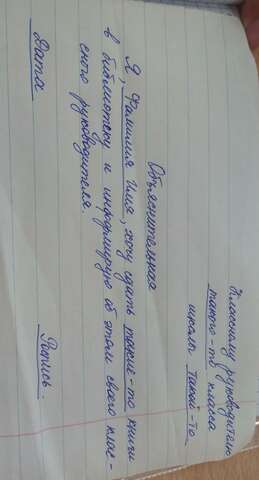 Классному руководителю
такого-то класса
школы такой-то
Объяснительная
Я, Фамилия Имя, хочу сдать такие-то книги
в библиотеку и информирую об этом своего клас-
сного руководителя.
Дата Подпись.